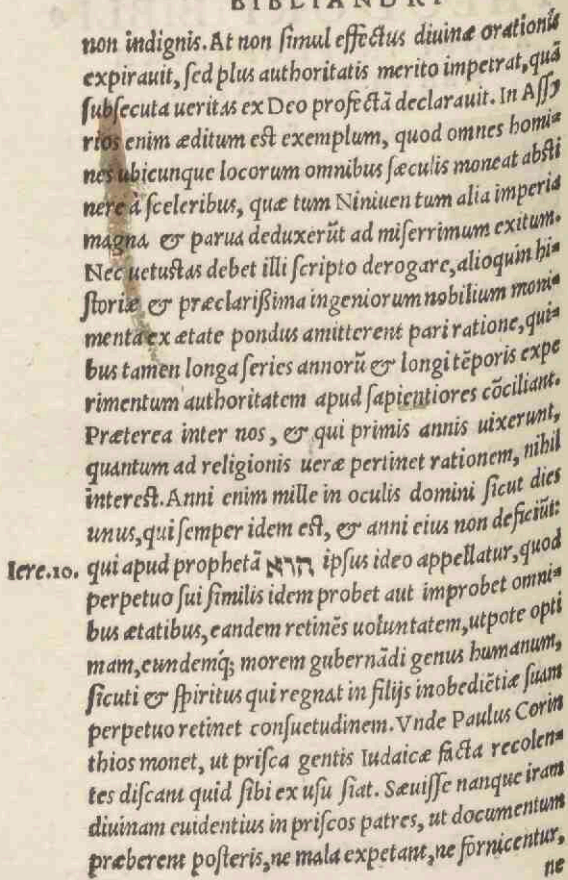 BIBLIANDRI
non indignis. At non ſimul effectus diuinæ orationis
expirauit, ſed plus authoritatis merito impetrat, quã
ſubſecuta ueritas ex Deo profectã declarauit. In Aſſy
rios enim æditum eſt exemplum, quod omnes homi⸗
nes ubicunque locorum omnibus ſæculis moneat abſti
nere à ſceleribus, quæ tum Niniuen tum alia imperia
magna & parua deduxerũt ad miſerrimum exitum.
Nec uetuſtas debet illi ſcripto derogare, alioquin hi⸗
ſtoriæ & præclarißima ingeniorum nobilium moni⸗
menta ex ætate pondus amitterent pari ratione, qui⸗
bus tamen longa ſeries annorũ & longi tẽporis expe
rimentum authoritatem apud ſapientiores cõciliant.
Præterea inter nos, & qui primis annis uixerunt,
quantum ad religionis ueræ pertinet rationem, nihil
intereſt. Anni enim mille in oculis domini ſicut dies
unus, qui ſemper idem eſt, & anni eius non deficiũt:
Iere.10. qui apud prophetã הוא ipſus ideo appellatur, quod
perpetuo ſui ſimilis idem probet aut improbet omni⸗
bus ætatibus, eandem retinẽs uoluntatem, utpote opti
mam, eundemq́; morem gubernãdi genus humanum,
ſicuti & ſpiritus qui regnat in filijs inobediẽtiæ ſuam
perpetuo retinet conſuetudinem. Vnde Paulus Corin
thios monet, ut priſca gentis Iudaicæ facta recolen⸗
tes diſcant quid ſibi ex uſu ſiat. Sæuiſſe nanque iram
diuinam euidentius in priſcos patres, ut documentum
præberent poſteris, ne mala expetant, ne fornicentur,
ne